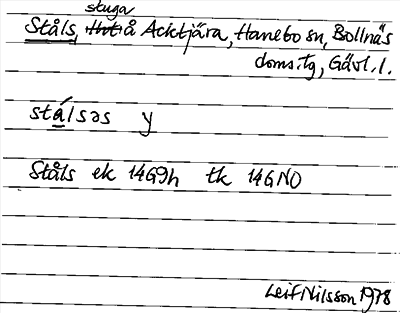 stuga
Ståls, å Acktjära, Hanebo sn, Bollnäs
doms.tg, Gävl.l.
stálsəs y
Ståls ek 14G9h tk 14GNO
Leif Nilsson 1978